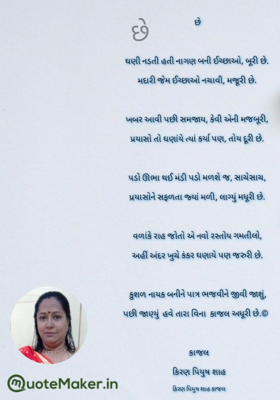 છે
છે
ઘણી નડતી હતી નાગણ બની ઈચ્છાઓ, બૂરી છે.
મદારી જેમ ઈચ્છાઓ નચાવી, મજૂરી છે.
ખબર આવી પછી સમજાય, કેવી એની મજબૂરી,
પ્રયાસો તો ઘણાંયે ત્યાં કર્યા પણ, તોય દૂરી છે.
પડો ઊભા થઈ મંડી પડો મળશે જ, સાચેસાચ,
પ્રયાસોને સફળતા જ્યાં મળી, લાગ્યું મધૂરી છે.
વળાંકે રાહ જોતો એ નવો રસ્તોય ગમતીલો,
અહીં અંદર ખુચે કંકર ઘણાયે પણ જરુરી છે.
કુશળ નાયક બનીને પાત્ર ભજવીને જીવી જાશું,
પછી જાણ્યું હવે તારા વિના કાજલ અધૂરી છે.©
કાજલ
કિરણ પિયુષ શાહ
QuoteMaker.in
કિરણ પિયુષ શાહ કાજલ